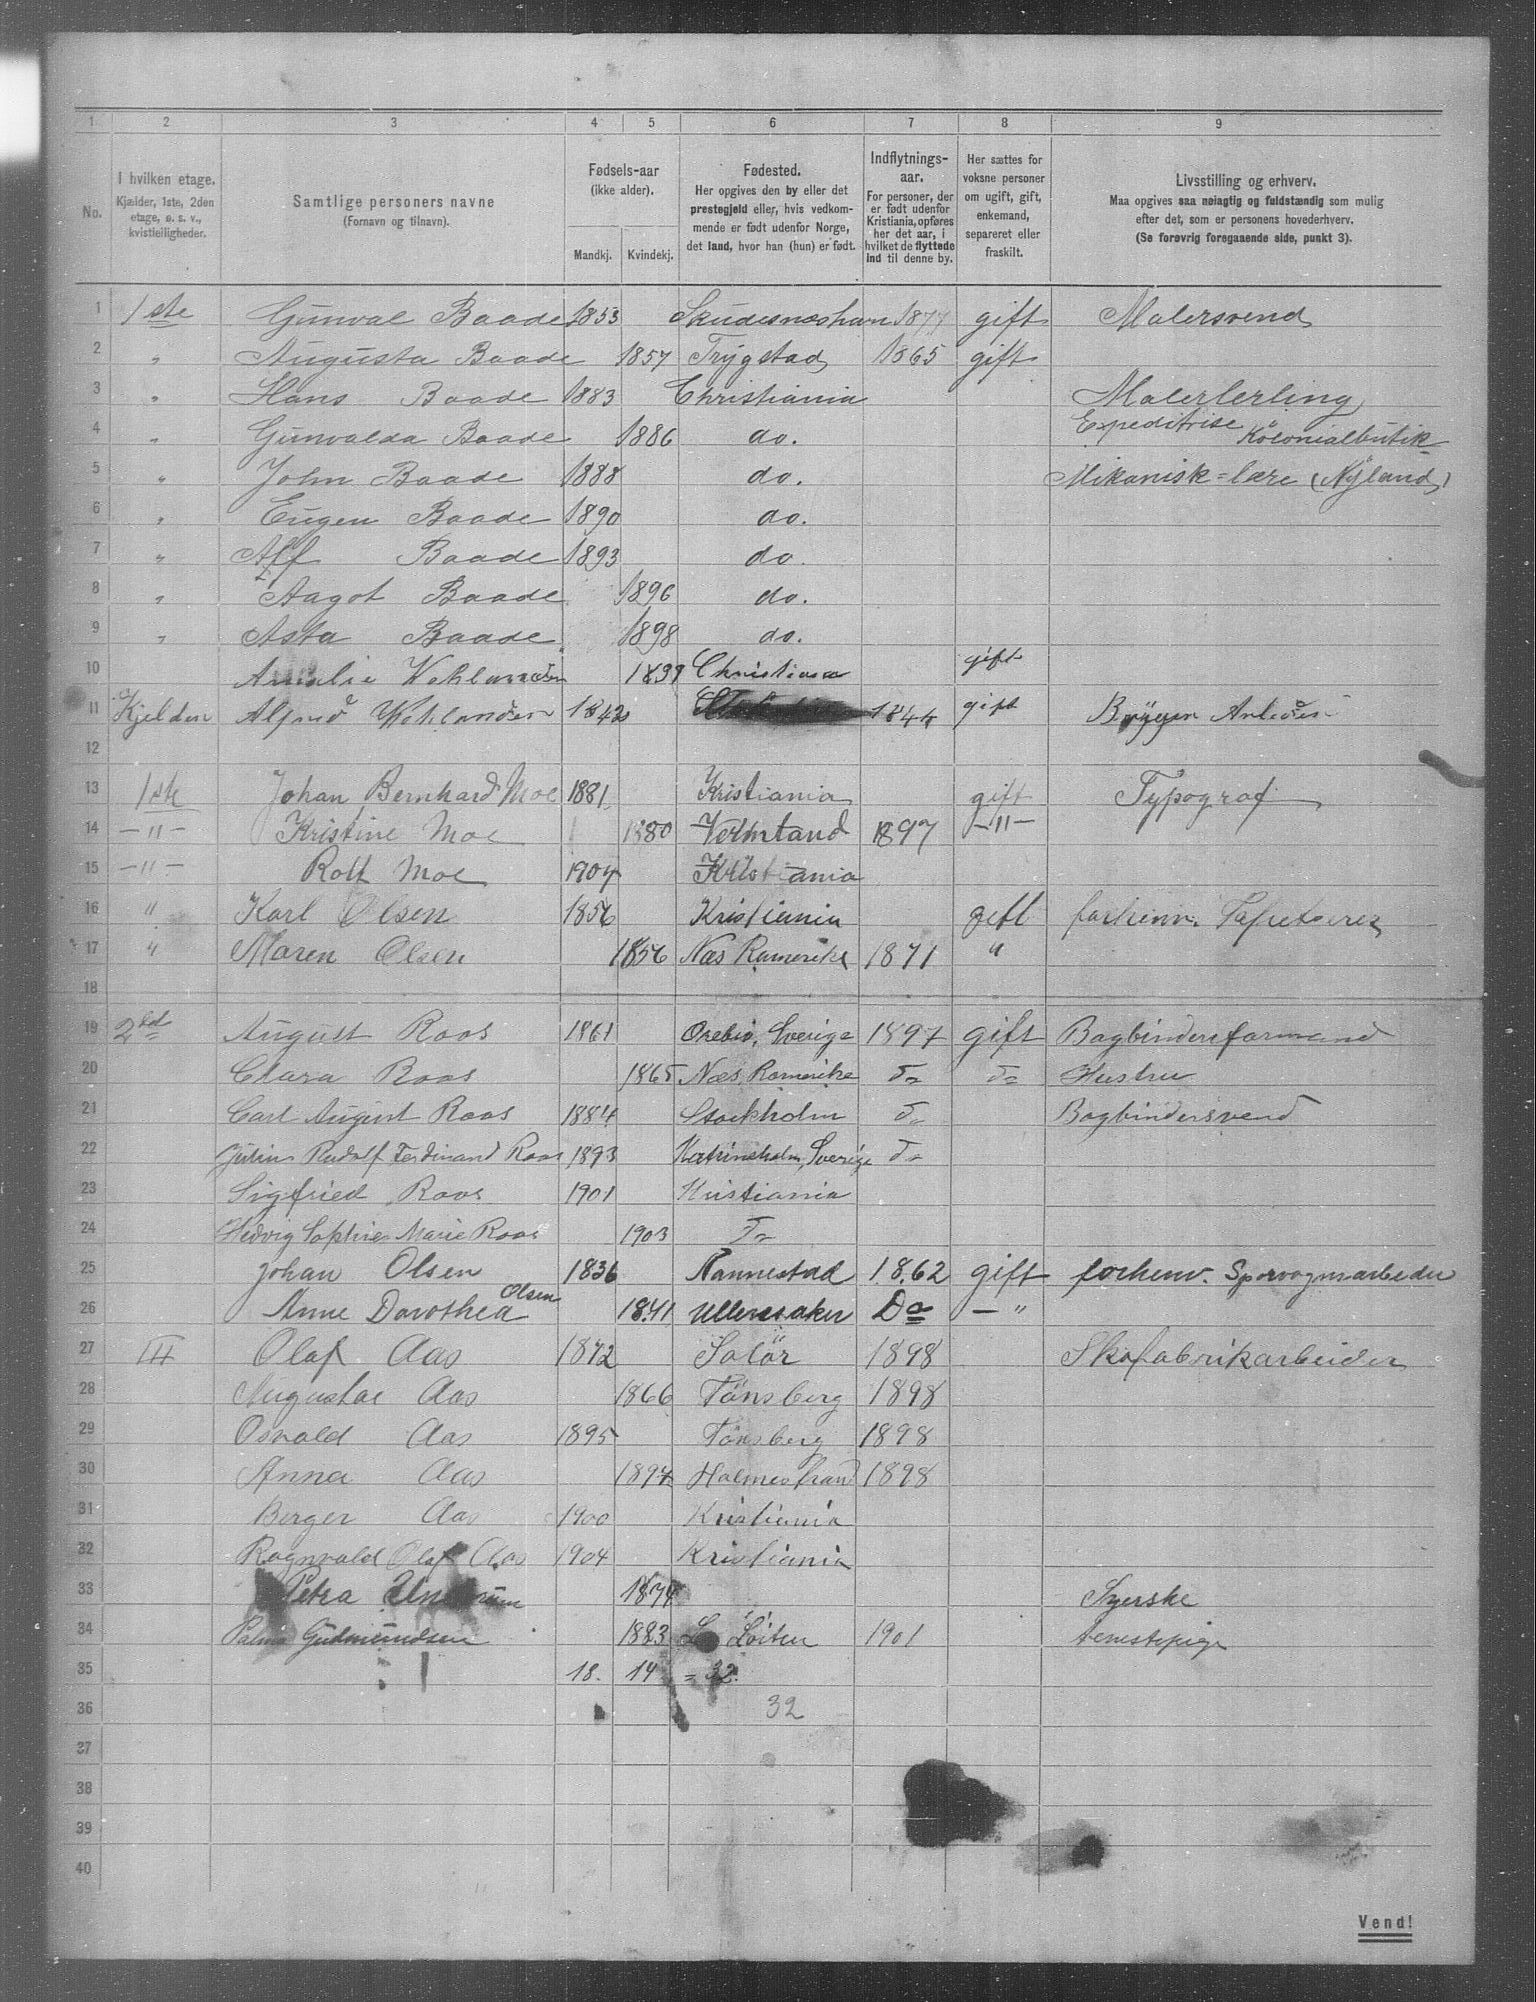 1 2 3 4 5 6 7 8 9
No.
I hvilken etage.
Kjælder, 1ste, 2den
etage, o. s. v.,
kvistleiligheder.
Samtlige personers navne
(Fornavn og tilnavn).
Fødsels-aar
(ikke alder).
Mandkj. Kvindekj.
Fødested.
Her opgives den by eller det
prestegjeld eller, hvis vedkom-
mende er født udenfor Norge,
det land, hvor han (hun) er født.
Indflytnings-
aar.
For personer, der
er født udenfor
Kristiania, opføres
her det aar, i
hvilket de flyttede
ind til denne by.
Her sættes for
voksne personer
om ugift, gift,
enkemand,
separeret eller
fraskilt.
Livsstilling og erhverv.
Maa opgives saa nøiagtig og fuldstændig som mulig
efter det, som er personens hovederhverv.
(Se forøvrig foregaaende side, punkt 3).
1 1ste Gunval Baade 1853 Skudesneshavn 1877 gift Malersvend
2 " Augusta Baade 1857 Trygstad 1865 gift
3 " Hans Baade 1883 Christiania Malerlerling
4 " Gunvalda Baade 1886 do. Expeditrise Kolonialbutik
5 " John Baade 1888 do. Mikanisk=lære (Nyland)
6 " Eugen Baade 1890 do.
7 " Alf Baade 1893 do.
8 " Aagot Baade 1896 do.
9 " Asta Baade 1898 do.
10 Amalie 1839 Christiania gift
11 Kjelder Alfred 1842 1844 gift Bryggeri
12
13 1ste Johan Bernhard Moe 1881 Kristiania gift Typograf
14 -"- Kristine Moe 1880 Vermland 1897 -"-
15 -"- Rolf Moe 1904 Kristiania
16 " Karl Olsen 1856 Kristiania gift forhenv. Tapetserer
17 " Maren Olsen 1856 Næs Romerike 1871 "
18
19 2den August Roos 1861 Örebro, Sverige 1897 gift Bogbinderiformand
20 Clara Roos 1865 Næs, Romerike do do Hustru
21 Carl August Roos 1884 Stockholm do Bogbindersvend
22 Julius Rudolf Ferdinand Roos 1893 Katrineholm, Sverige do
23 Sigfried Roos 1901 Kristiania
24 Hedvig Sophie Marie Roos 1903 do
25 Johan Olsen 1836 Nannestad 1862 gift forhenv. Sporvognsarbeder
26 Anne Dorothea Olsen 1841 Ullensaker Do - "
27 III Olaf Aas 1872 Solör 1898 Skofabrikarbeider
28 Augusta Aas 1866 Tönsberg 1898
29 Osvald Aas 1895 Tönsberg 1898
30 Anna Aas 1897 Holmestrand 1898
31 Berger Aas 1900 Kristiania
32 Ragnvald Olaf Aas 1904 Kristiania
33 Petra 1874 Syerske
34 Palma Gudmundsen 1883 Löiten 1901 tenestepige
35 18. 14 = 32.
36 32
37
38
39
40
Vend!